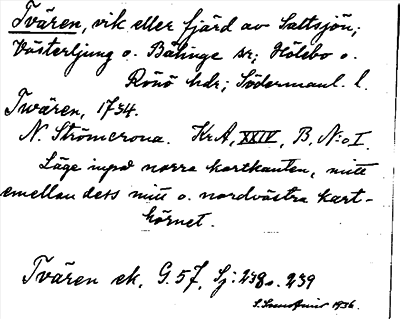 Tvären, vik eller fjärd av Saltsjön;
Västerljung o. Bälinge sr; Hölebo o.
Rönö hdr; Södermanl. l.
Twären, 1734.
N. Strömcrona. KrA, XXIV, B, N:o I.
Läge inpå norra kartkanten, mitt
emellan dess mitt o. nordvästra kart-
hörnet.
Tvären ek. G. 57, Sj: 238 o. 239
1936.